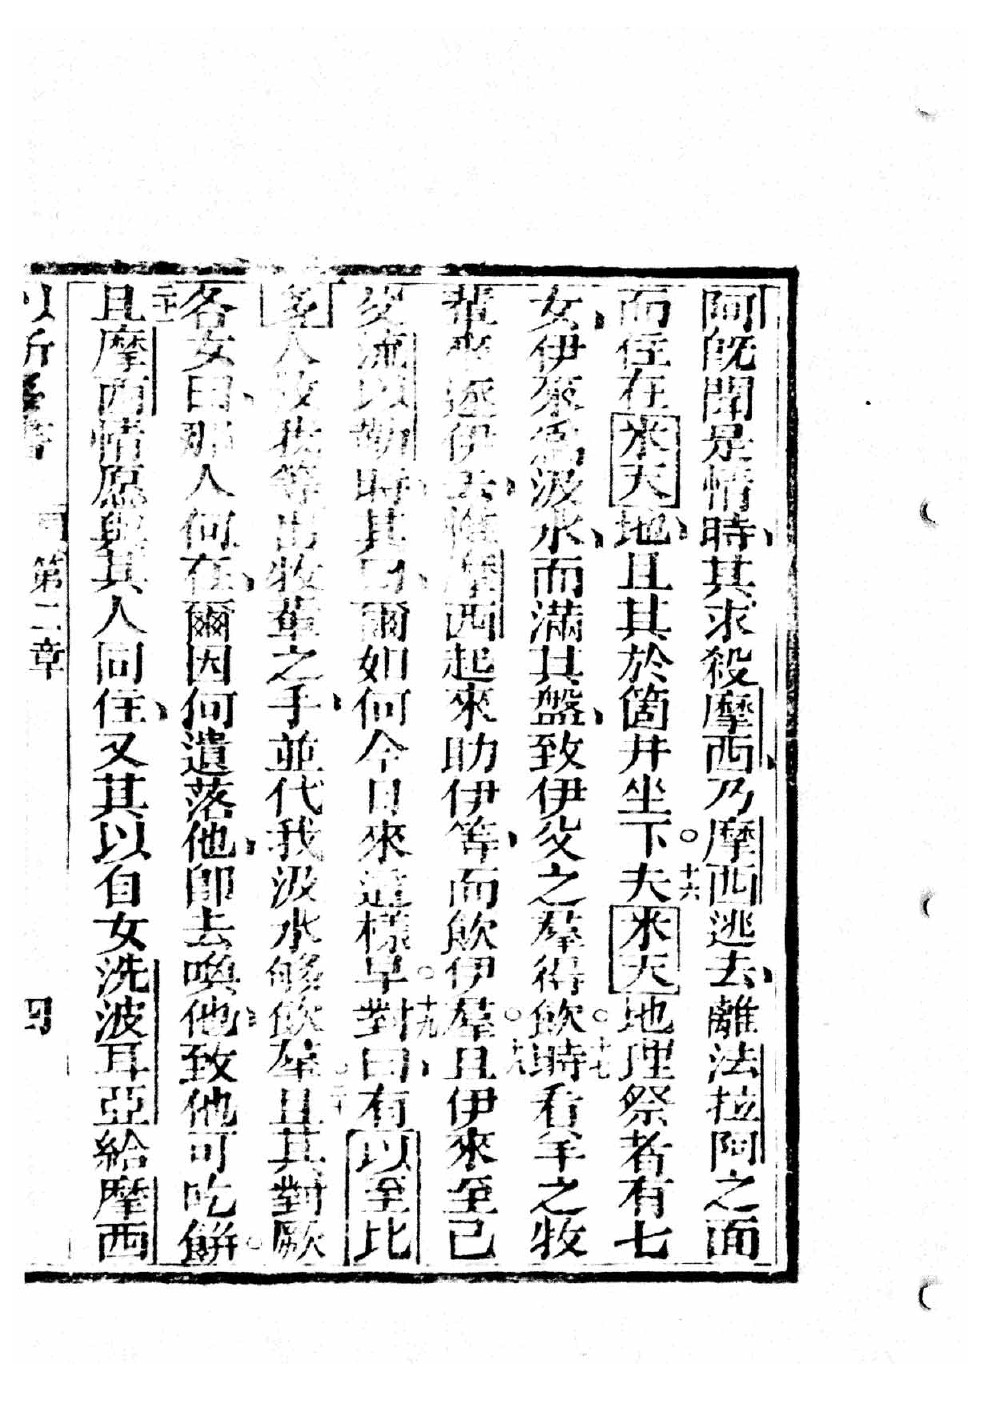 阿旣聞是情時其求殺摩西乃摩西逃去離法拉阿之面
而住在米天地且其於箇井坐下○十六夫米天地理祭者有七
女伊來爲汲水而滿其盤致伊父之羣得飲○十七時看羊之牧
輩來逐伊去惟摩西起來助伊等而飲伊羣○十八且伊來至己
父流以勒時其曰爾如何今日來這樣早○十九對曰有以至比
多人救我等出牧輩之手並代我汲水彀飲羣○二十且其對厥
各女曰那人何在爾因何遺落他卽去喚他致他可吃餅○
且摩西情原與其人同住又其以自女洗波耳亞給摩西
第二章
四